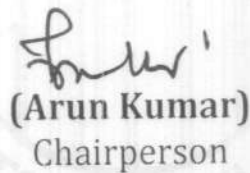 (Arun Kumar)
Chairperson